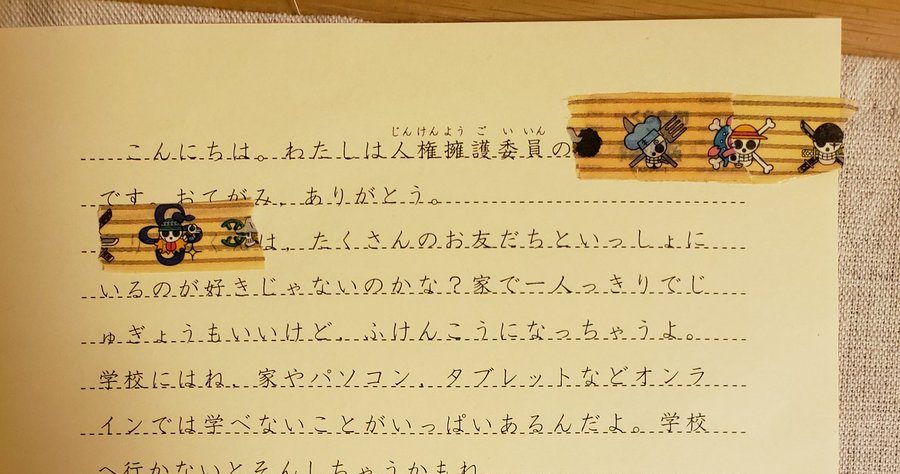 じんけんようごいいん
こんにちは。わたしは人権擁護委員の
です。おてがみ、ありがとう。
は、たくさんのお友だちといっしょに
いるのが好きじゃないのかな？家で一人っきりでじ
ゅぎょうもいいけど、ふけんこうになっちゃうよ。
学校にはね、家やパソコン、タブレットなどオンラ
インでは学べないことがいっぱいあるんだよ。学校
へ行かないとそんしちゃうかもね